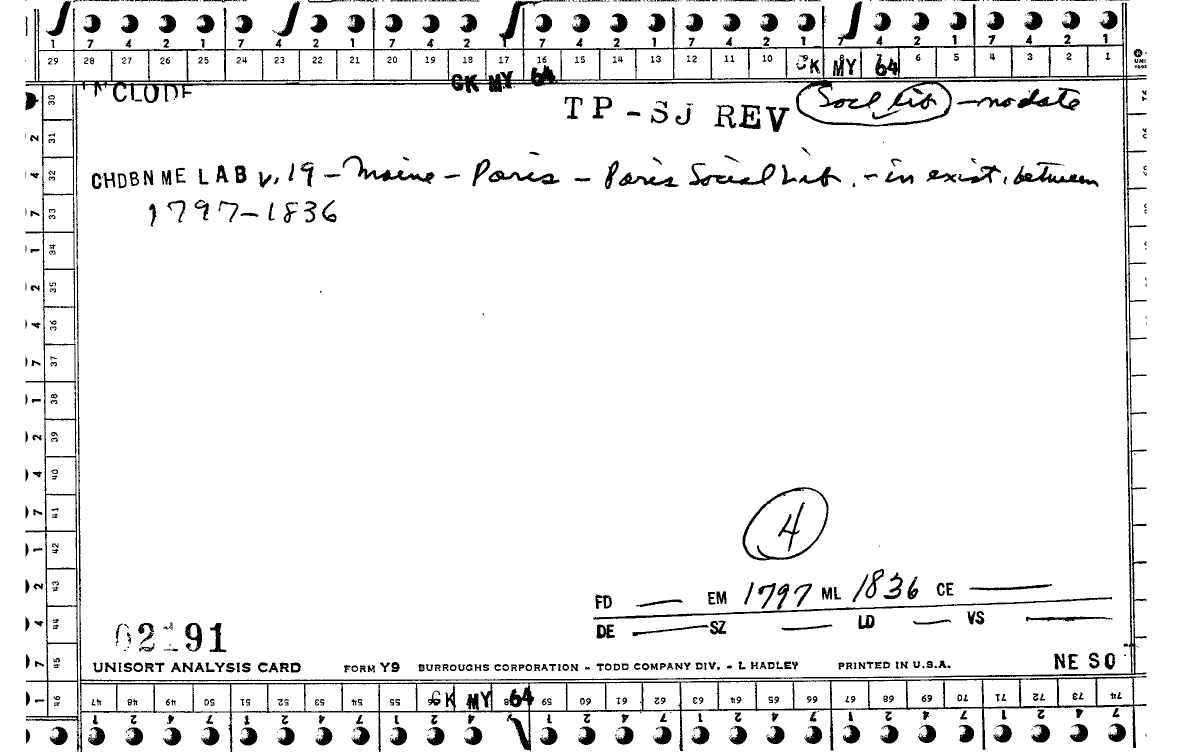 1 7 4 2 1 7 4 2 1 7 4 2 1 7 4 2 1 7 4 2 1 7 4 2 1 7 4 2 1
29 28 27 26 25 24 23 22 21 20 19 18 17 16 15 14 13 12 11 10 CK MY 64 6 5 4 3 2 1
CK MY 64
INCLUDE
TP-SJ REV Socl Lib - no date
CHDBN ME LAB v.19 - Maine - Paris - Paris Social Lib. - in exist. between
1797-1836
30
2 31
4 32
7 33
1 34
2 35
4 36
7 37
1 38
2 39
4 40
7 41
1 42
2 43
4 44
7 45
1 46
4
FD — EM 1797 ML 1836 CE —
DE — SZ — LD — VS —
02191
UNISORT ANALYSIS CARD FORM Y9 BURROUGHS CORPORATION - TODD COMPANY DIV. - L HADLEY PRINTED IN U.S.A. NE SO
47 48 49 50 51 52 53 54 55 CK MY 64 59 60 61 62 63 64 65 66 67 68 69 70 71 72 73 74
1 2 4 7 1 2 4 7 1 2 4 1 2 4 7 1 2 4 7 1 2 4 7 1 2 4 7